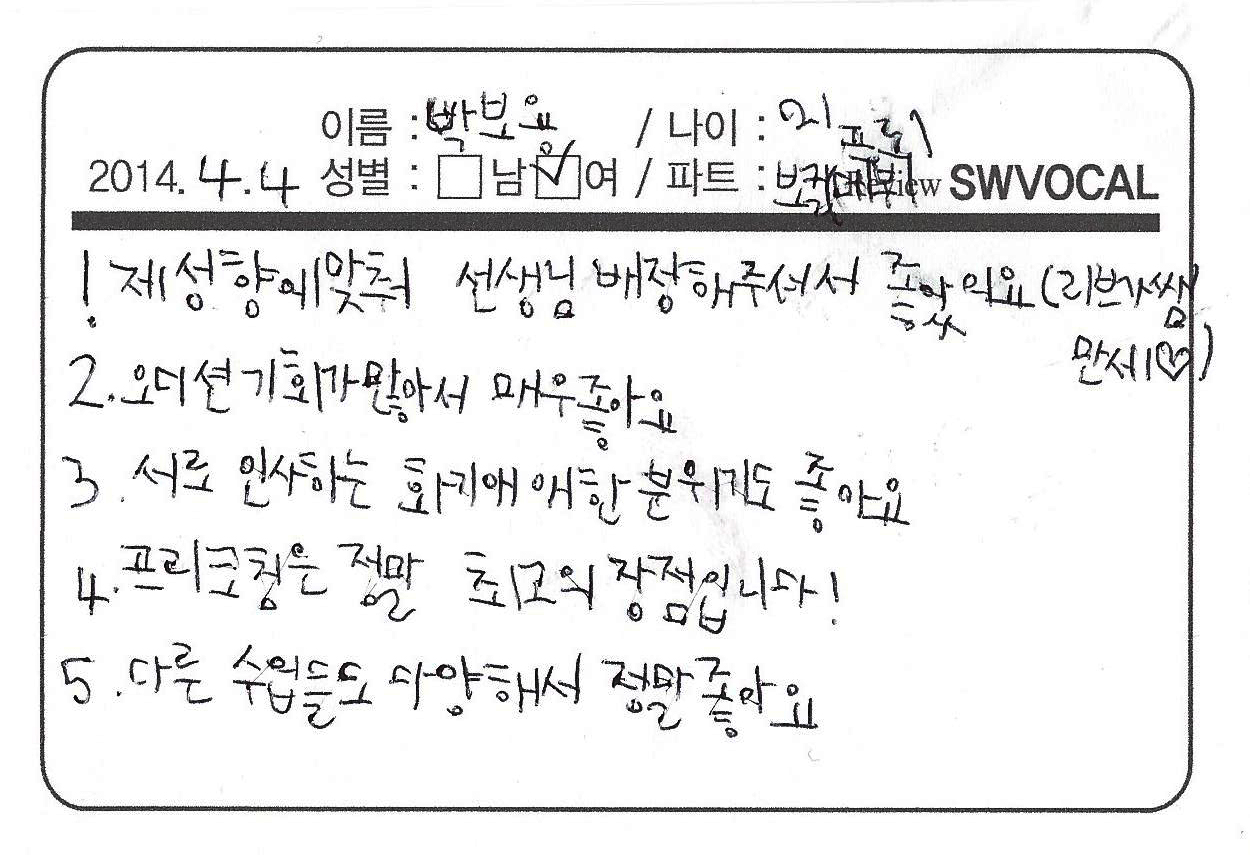 이름 : 박보요 / 나이 : 21
2014. 4. 4 성별 : 남 여 / 파트 : 보컬 프리 SWVOCAL
! 제 성향에 맞춰 선생님 배정해주셔서 좋았어요 (리브가쌤
만세!♡)
2. 오디션 기회가 많아서 매우 좋아요
3. 서로 인사하는 화기애애한 분위기도 좋아요
4. 프리코칭은 정말 최고의 장점입니다!
5. 다른 수업들도 다양해서 정말 좋아요